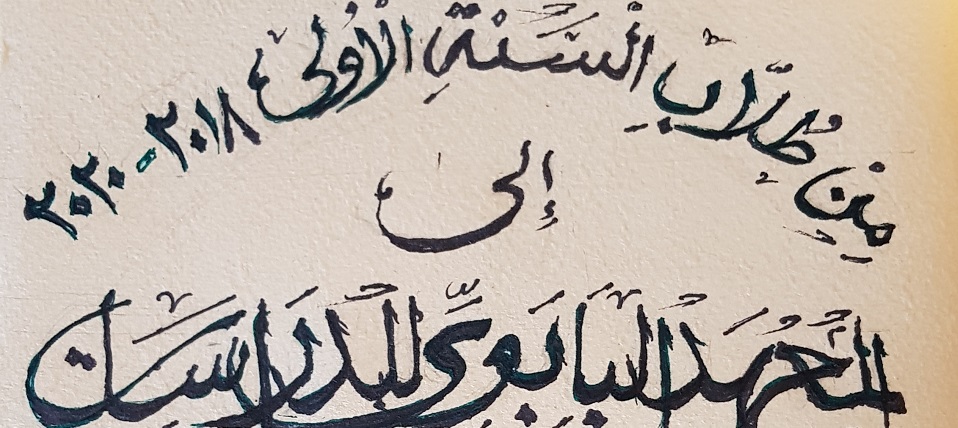 مِنْ طُلَّابِ السَّنَةِ الْأُولَى ٢٠١٨-٢٠٢٠
إلى
المَعْهَدِ البَابَوِيِّ لِلدِّرَاسَات